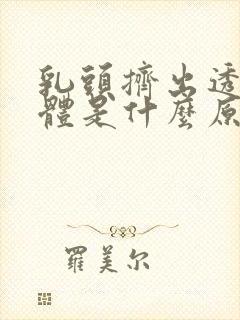 乳頭擠出透
體是什麼原
羅美尔